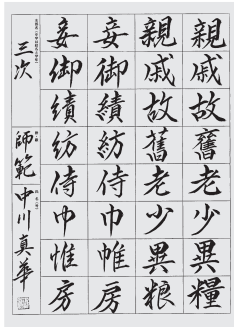 親戚故舊老少異糧
親戚故舊老少異粮
妾御績紡侍巾帷房
妾御績紡侍巾帷房
三次 師範 中川真華